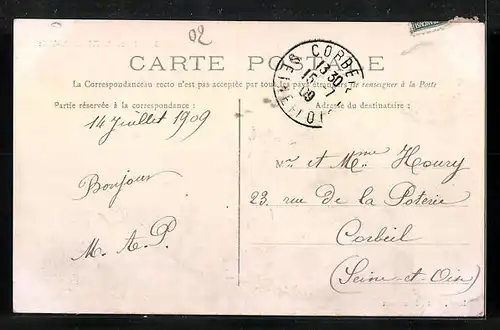 02
CARTE POSTALE
La Correspondance au recto n'est pas acceptée par tous les pays étrangers
Se renseigner à la Poste
Partie réservée à la correspondance :
Adresse du destinataire :
CORBEIL
13 30
15 - 7
09
SEINE ET OISE
14 Juillet 1909
Bonjour
M. A. P.
Mr et Mme Houry
23, rue de la Poterie
Corbeil
(Seine-et-Oise)